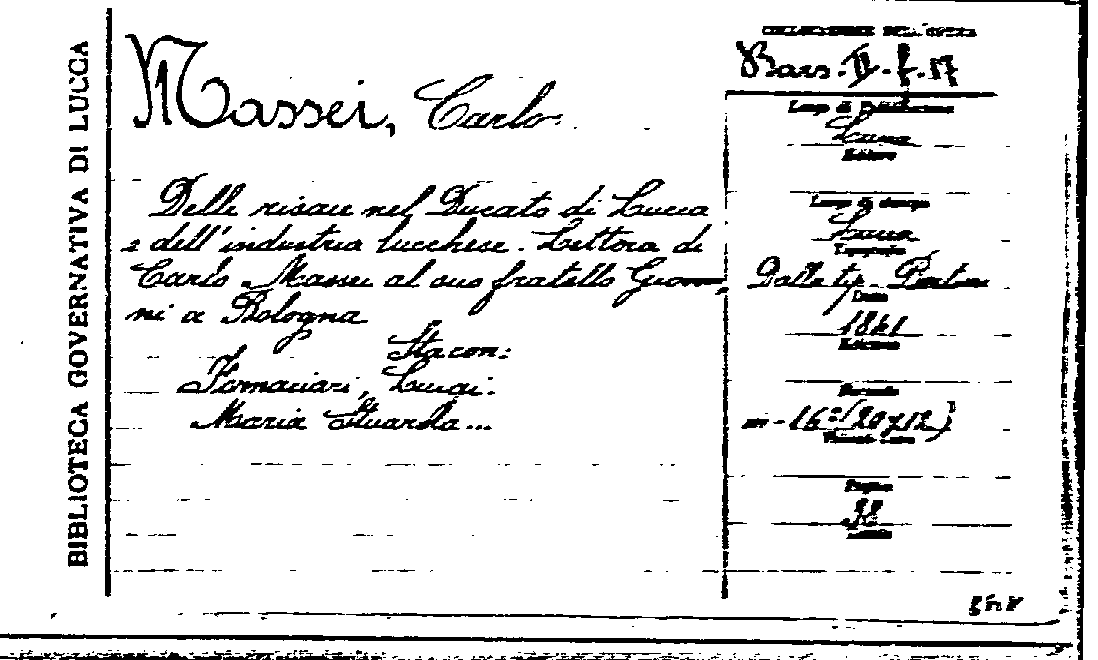 BIBLIOTECA GOVERNATIVA DI LUCCA
Massei, Carlo
Delle risaie nel Ducato di Lucca
e dell'industria lucchese. Lettera di
Carlo Massei al suo fratello Giovan-
ni a Bologna
Sta con:
Fornaciari, Luigi:
Maria Stuarda...
COLLOCAZIONE DELL'OPERA
Bars. II. 7. 17
Luogo di Pubblicazione
Lucca
Editore
Luogo di stampa
Lucca
Tipografia
Dalla tip.
Data
1841
Edizione
Formato
in-16º (20x12)
Pagine